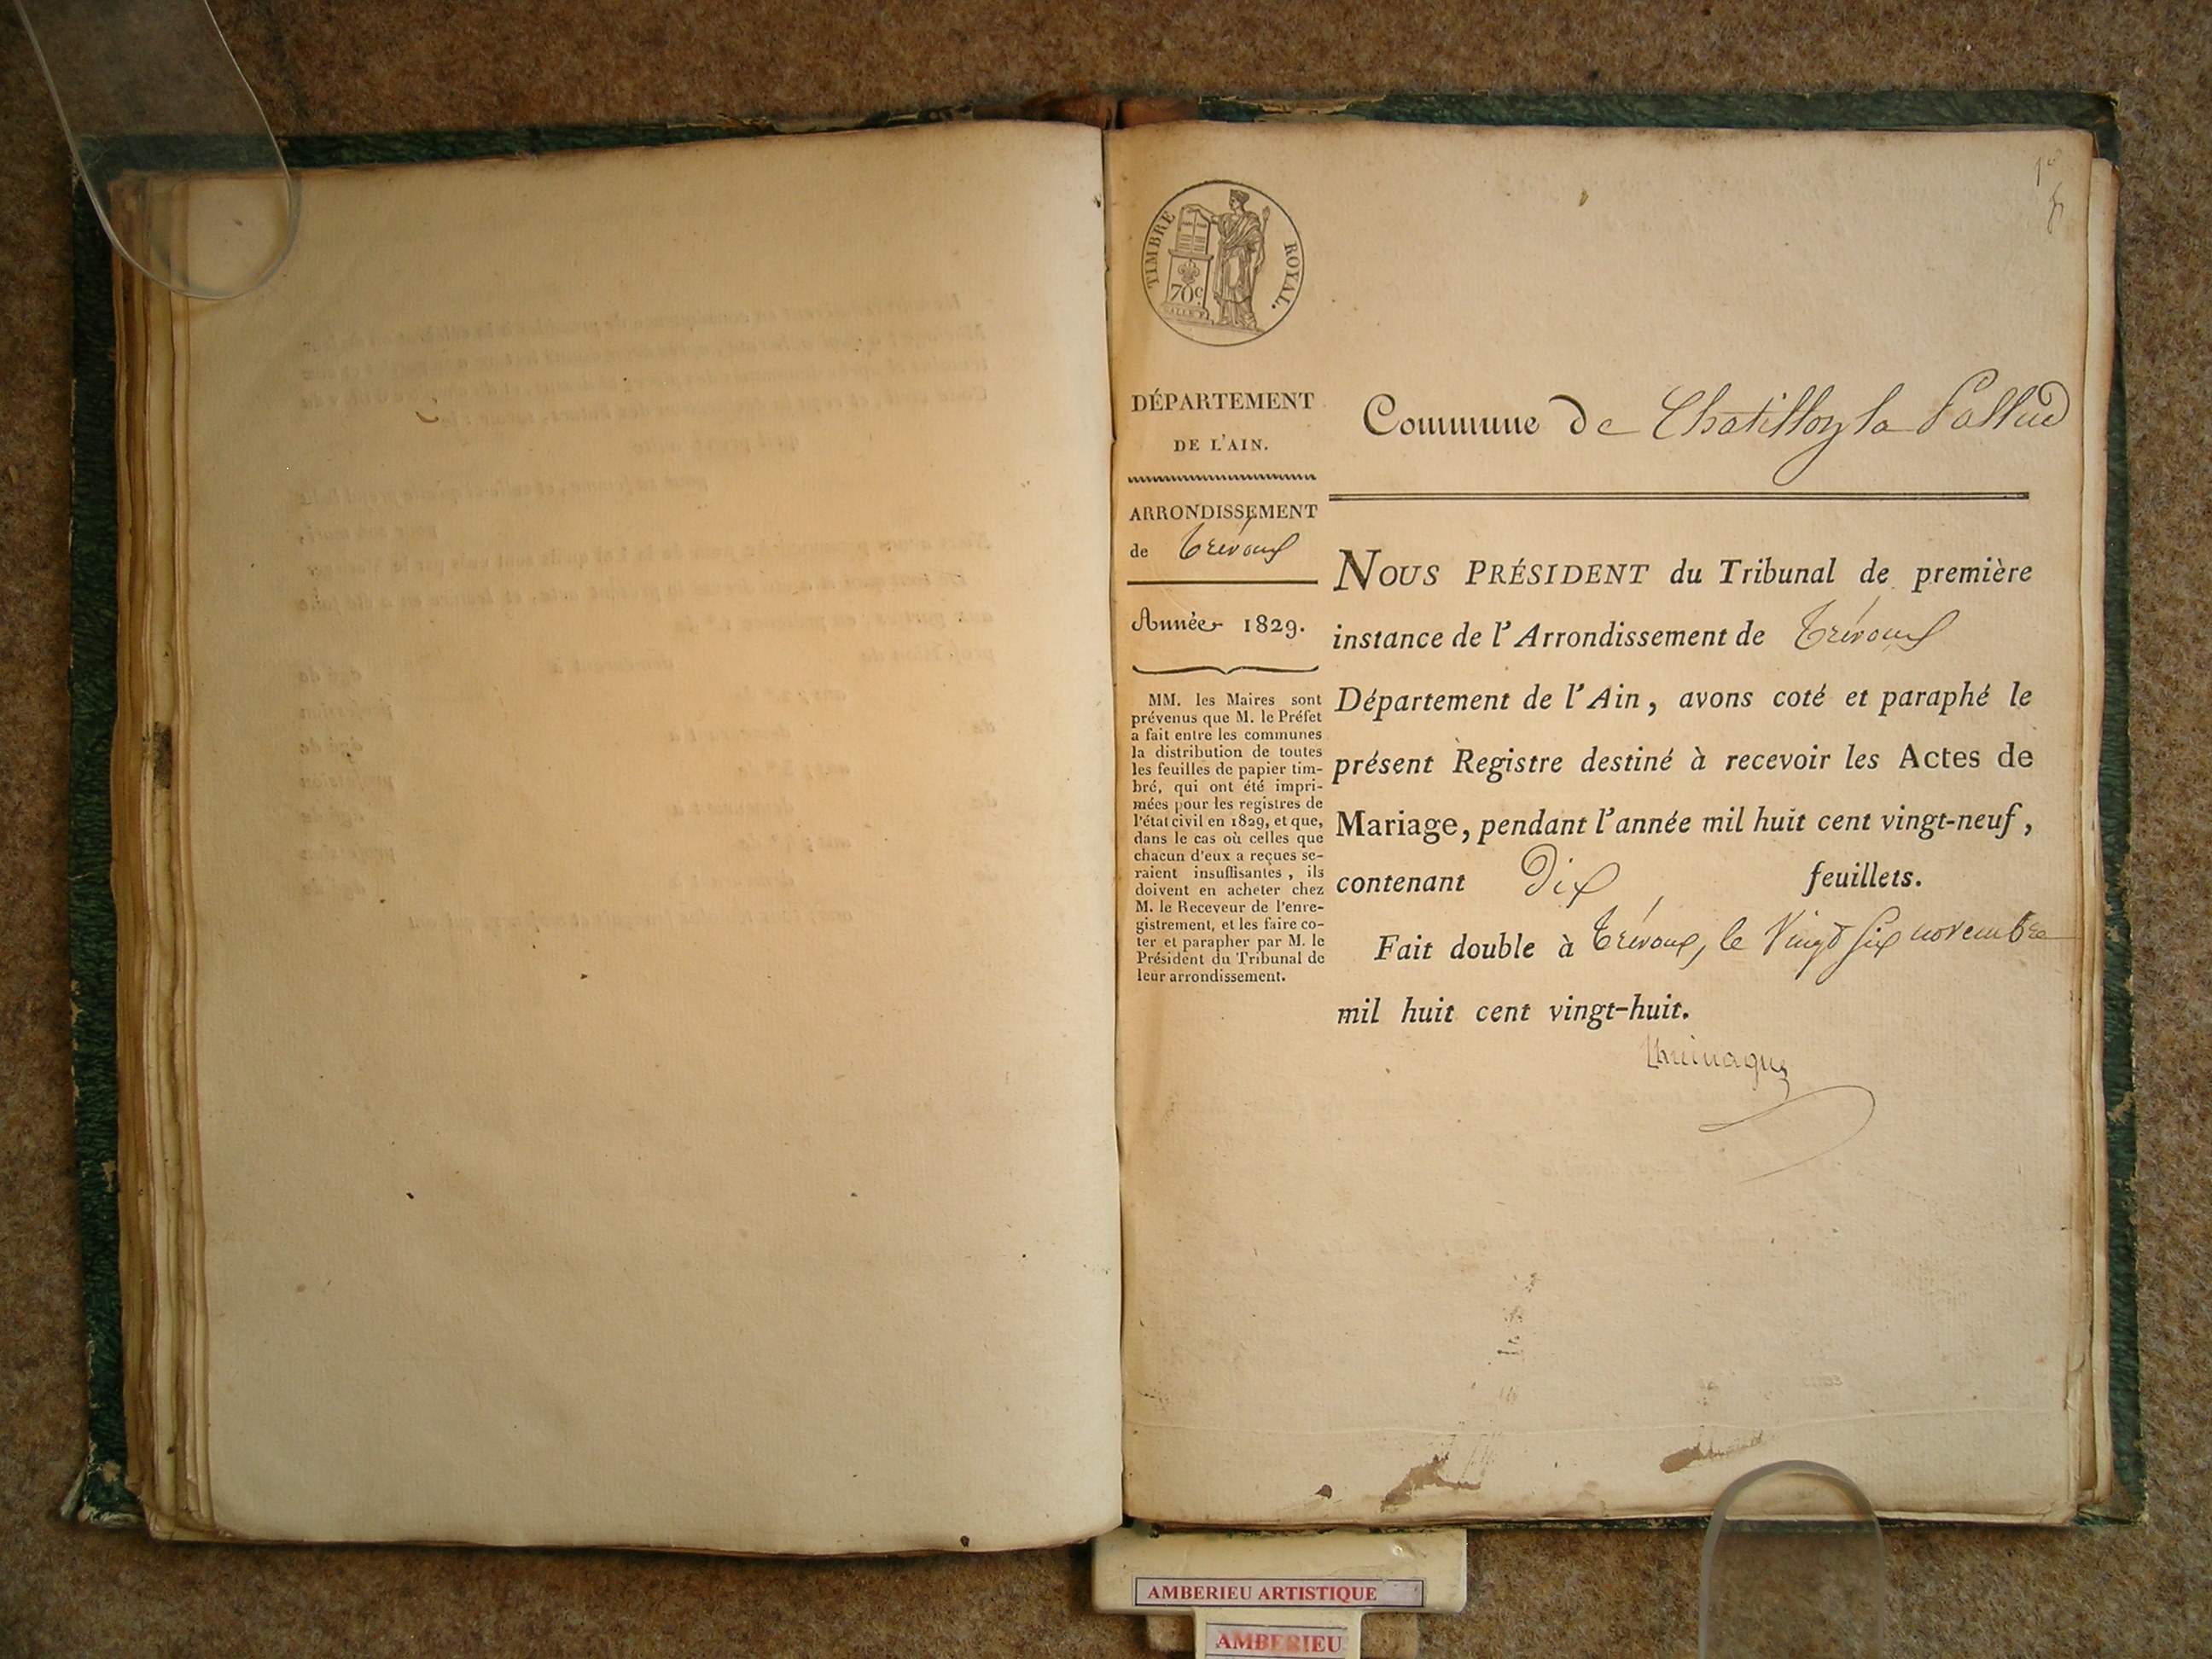 1er
TIMBRE ROYAL.
70c
DÉPARTEMENT
DE L'AIN.
ARRONDISSEMENT
de Trévoux
Année 1829.
MM. les Maires sont
prévenus que M. le Préfet
a fait entre les communes
la distribution de toutes
les feuilles de papier tim-
bré, qui ont été impri-
mées pour les registres de
l'état civil en 1829, et que,
dans le cas où celles que
chacun d'eux a reçues se-
raient insuffisantes, ils
doivent en acheter chez
M. le Receveur de l'enre-
gistrement, et les faire co-
ter et parapher par M. le
Président du Tribunal de
leur arrondissement.
Commune de Chatillon la Pallud
NOUS PRÉSIDENT du Tribunal de première
instance de l'Arrondissement de Trévoux
Département de l'Ain, avons coté et paraphé le
présent Registre destiné à recevoir les Actes de
Mariage, pendant l'année mil huit cent vingt-neuf,
contenant Dix feuillets.
Fait double à Trévoux, le Vingt six novembre
mil huit cent vingt-huit.
AMBERIEU ARTISTIQUE
AMBERIEU